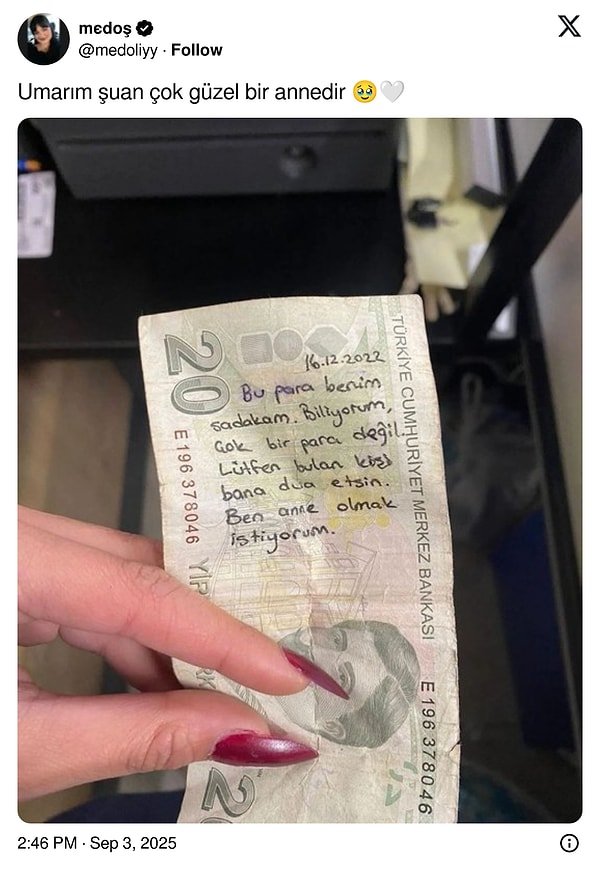 mɛdoş
@medoliyy · Follow
Umarım şuan çok güzel bir annedir 🥹🤍
20
TÜRKİYE CUMHURİYET MERKEZ BANKASI
16.12.2022
Bu para benim
sadakam. Biliyorum,
Çok bir para değil.
Lütfen bulan kişi
bana dua etsin.
Ben anne olmak
istiyorum.
E196378046
YİR
E 196 378046
20
2:46 PM · Sep 3, 2025